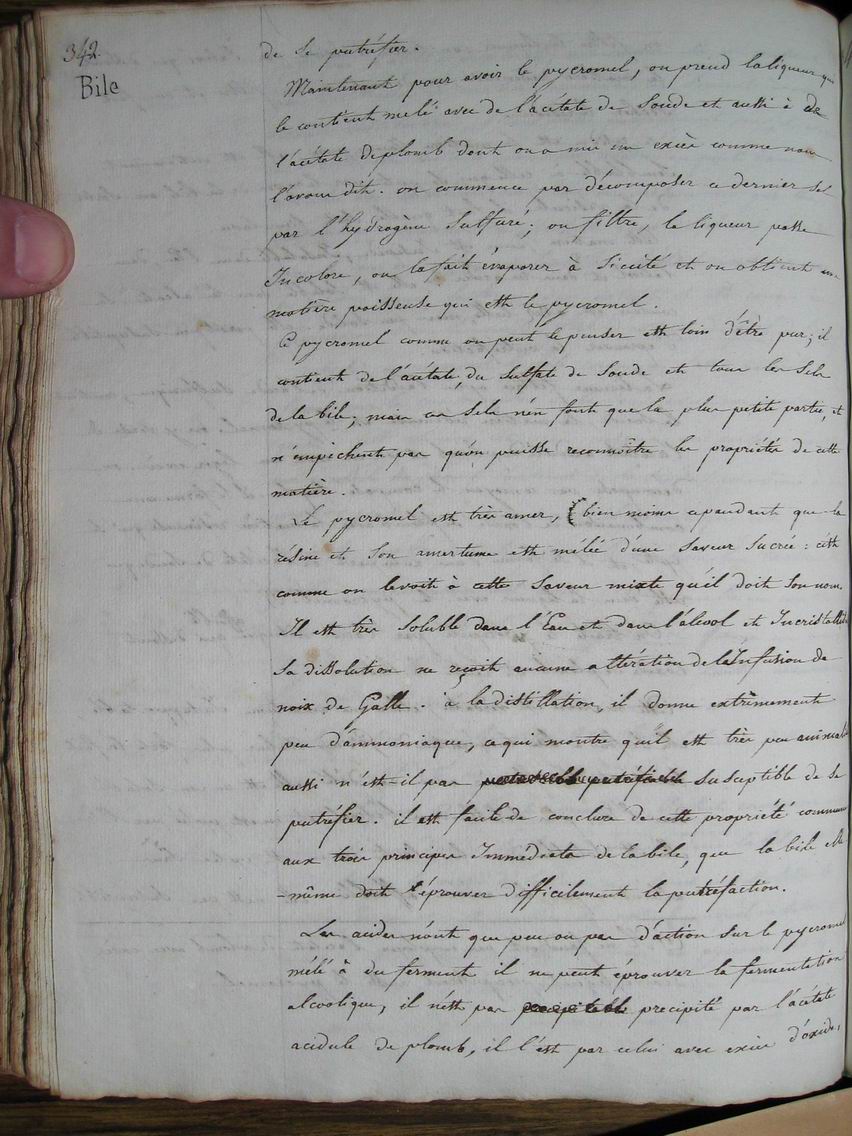 342.
Bile
de se putréfier.
Maintenant pour avoir le pycromel, on prend la liqueur qui
le contient mêlé avec de l'acétate de Soude et aussi à de
l'acétate de plomb dont on a mis un excès comme nous
l'avons dit. on commence par décomposer ce dernier sel
par l'hydrogène sulfuré; on filtre, la liqueur passe
Incolore, on la fait évaporer à siccité et on obtient une
matière poisseuse qui est le pycromel.
Ce pycromel comme on peut le penser est loin d'être pur; il
contient de l'acétate, du sulfate de Soude et tous les sels
de la bile; mais ces sels n'en font que la plus petite partie, et
n'empêchent pas qu'on puisse reconnoître les propriétés de cette
matière.
Le pycromel est très amer, bien moins cependant que la
résine et son amertume est mêlée d'une saveur sucrée: c'est
comme on le voit à cette saveur mixte qu'il doit son nom.
Il est très soluble dans l'Eau et dans l'alcool et Incristallisable
Sa dissolution ne reçoit aucune altération de la Infusion de
noix de Galle. à la distillation, il donne extrêmement
peu d'ammoniaque, ce qui montre qu'il est très peu animal
aussi n'est-il pas susceptible de se
putréfier. il est facile de conclure de cette propriété commune
aux trois principes Immédiats de la bile, que la bile elle
-même doit éprouver difficilement la putréfaction.
Les acides n'ont que peu ou pas d'action sur le pycromel
mêlé à du ferment il ne peut éprouver la fermentation
alcoolique, il n'est pas precipité par l'acétate
acidule de plomb, il l'est par celui avec excès d'oxide,